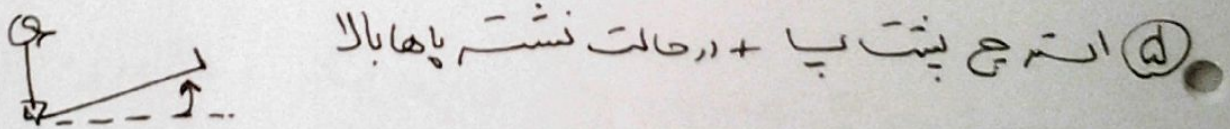 ۵ استرچ پشت پا + درحالت نشسته پاها بالا